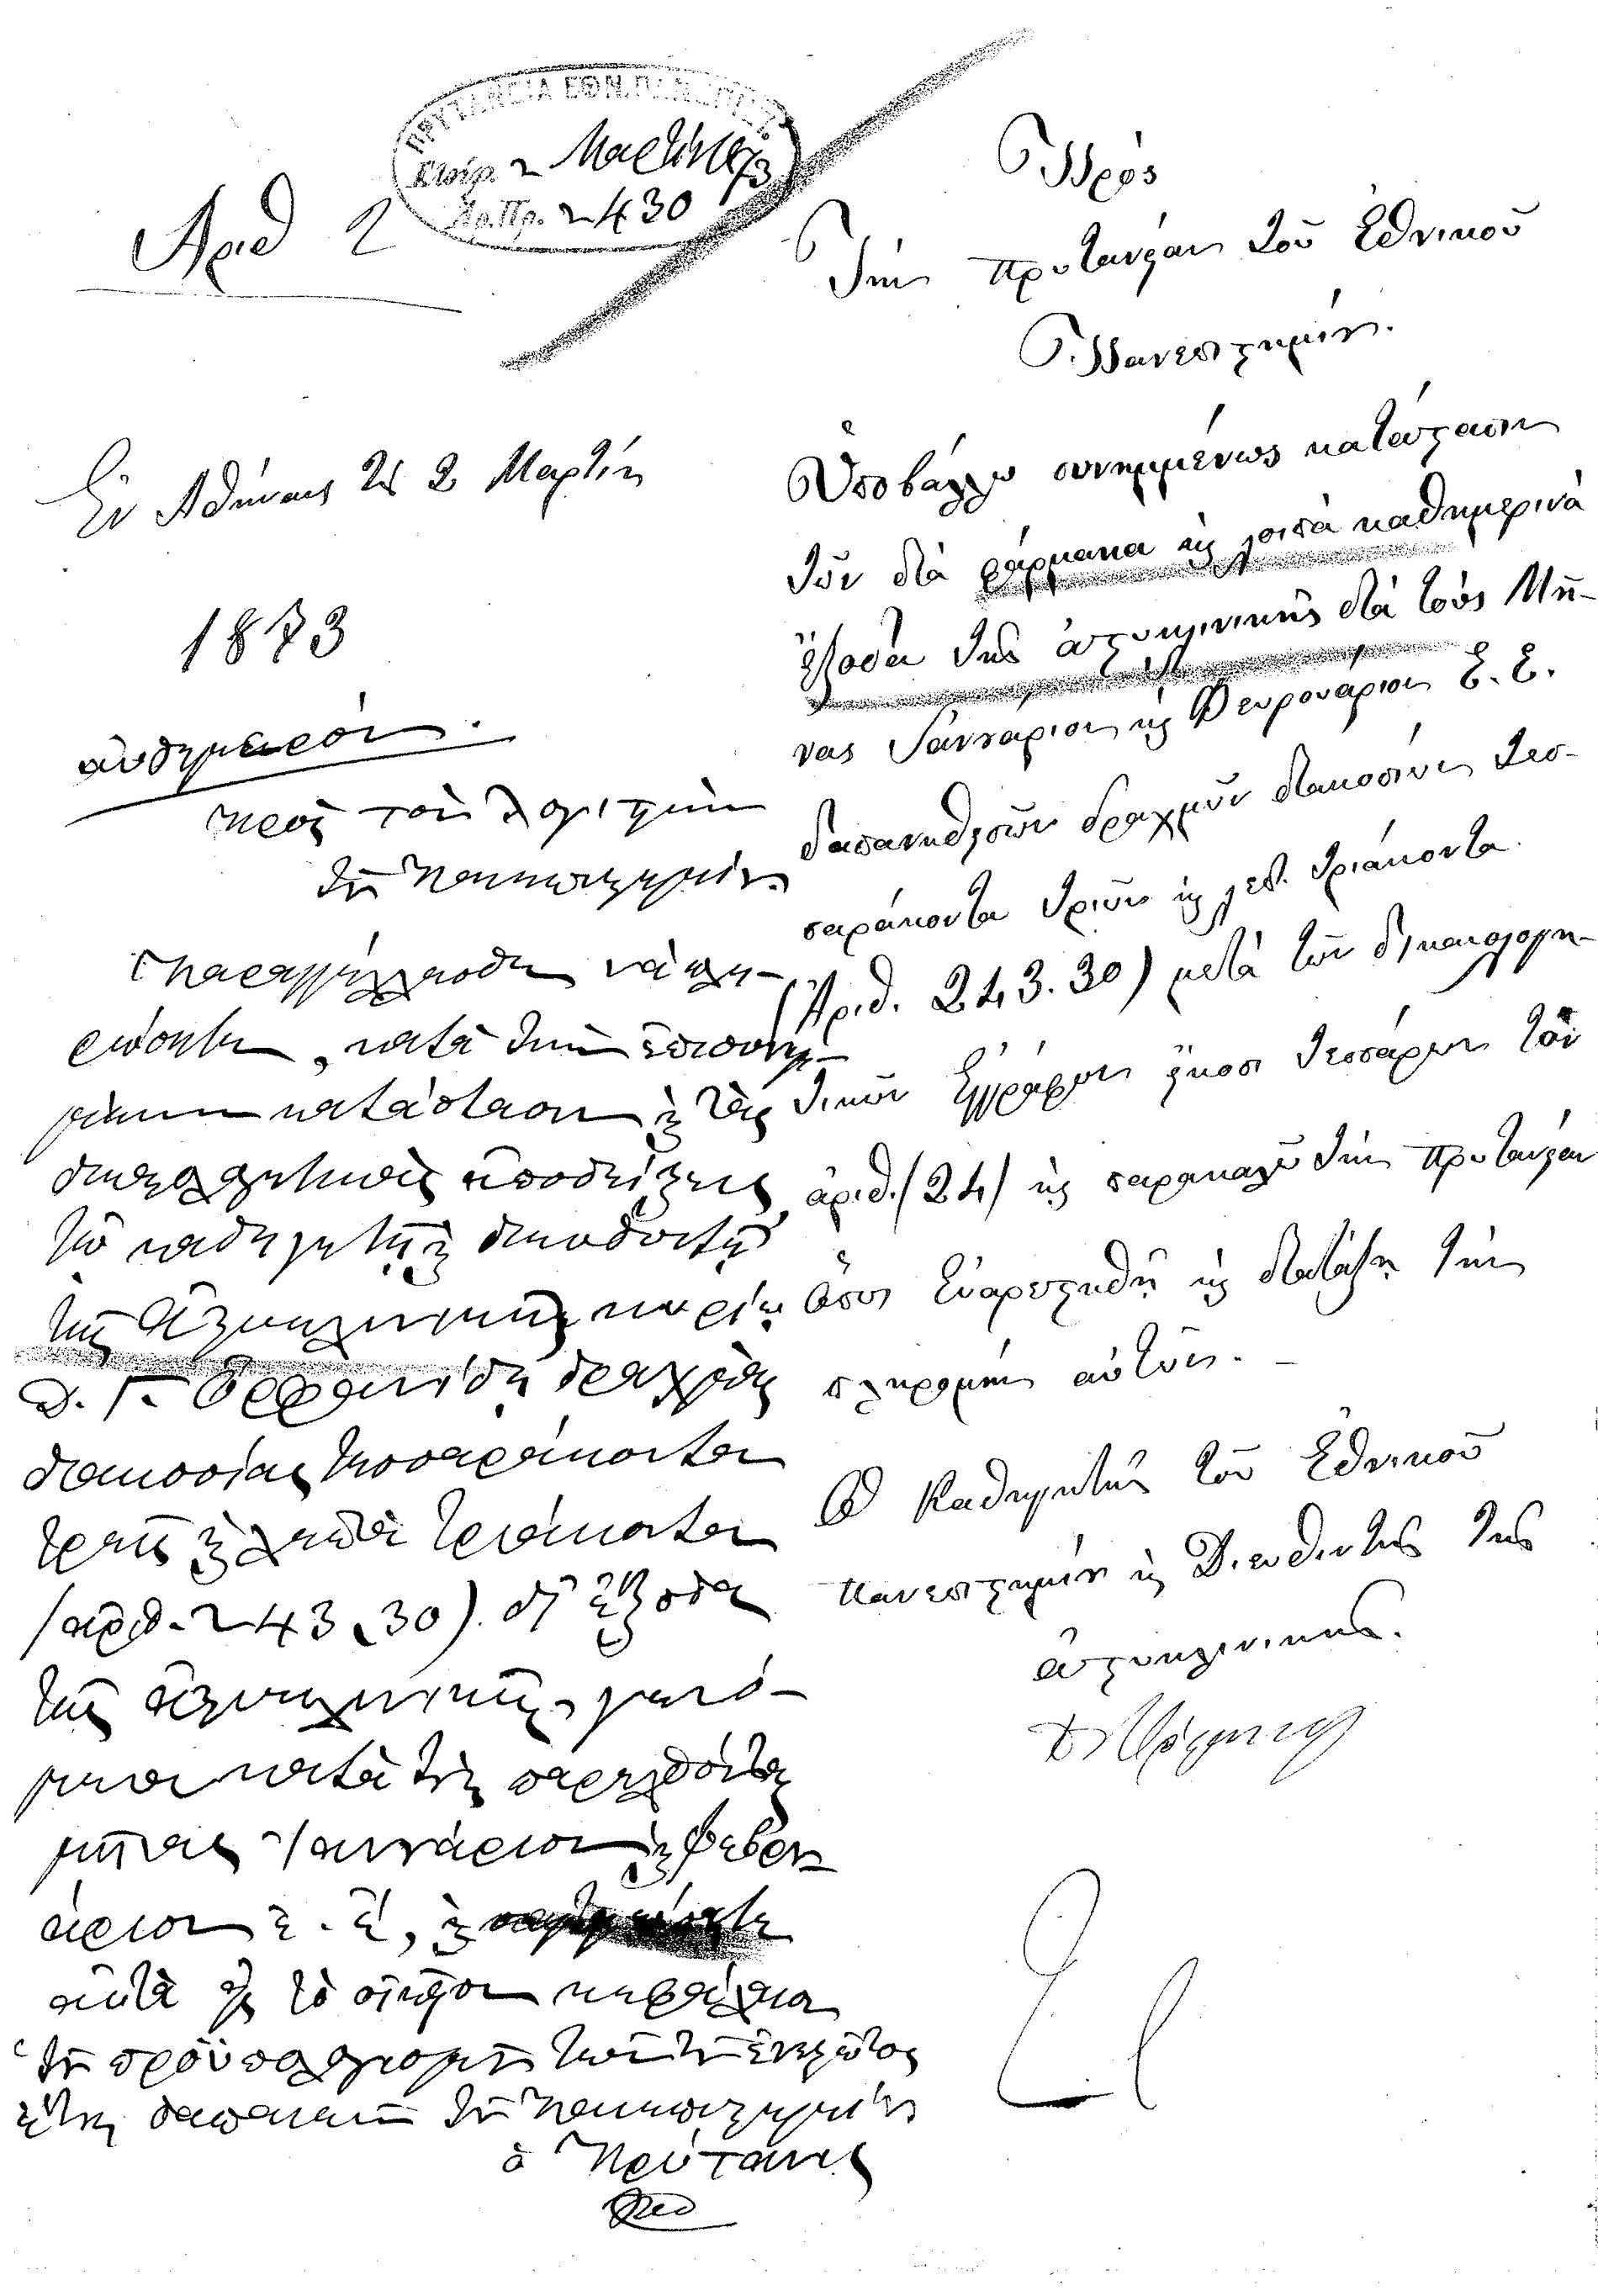 ΠΡΥΤΑΝΕΙΑ ΕΘΝ. ΠΑΝΕΠΙΣΤ.
Εἰσήρ. 2 Μαρτίου 1873
Ἀρ. Πρ. 2430
Ἀριθ 2
Πρὸς
Τὴν Πρυτανείαν τοῦ Ἐθνικοῦ
Πανεπιστημίου.
Ἐν Ἀθήναις τῇ 2 Μαρτίου
1873
Ὑποβάλλω συνημμένως κατάστασιν
τῶν διὰ φάρμακα καὶ λοιπὰ καθημερινὰ
ἔξοδα τῆς ἀστυκλινικῆς διὰ τοὺς Μῆ-
νας Ἰαννουάριον καὶ Φευρουάριον ἐ. ἔ.
δαπανηθεισῶν δραχμῶν διακοσίων τεσ-
σαράκοντα τριῶν καὶ λεπ. τριάκοντα
(Ἀριθ. 243.30) μετὰ τῶν δικαιολογη-
τικῶν Ἐγγράφων εἴκοσι τεσσάρων τὸν
ἀριθ. (24) καὶ παρακαλῶ τὴν Πρυτανείαν
ὅπως εὐαρεστηθῇ καὶ διατάξῃ τὴν
πληρωμὴν αὐτῶν. –
Ὁ Καθηγητὴς τοῦ Ἐθνικοῦ
Πανεπιστημίου καὶ Διευθυντὴς τῆς
ἀστυκλινικῆς.
αὐθημερόν.
Πρὸς τὸν λογιστὴν
τοῦ Πανεπιστημίου
Παραγγέλλεσθε νὰ πλη-
ρώσητε, κατὰ τὴν ἐπισυνημ-
μένην κατάστασιν καὶ τὰς
δικαιολογητικὰς ἀποδείξεις,
τῷ καθηγητῇ καὶ διευθυντῇ
τῆς Ἀστυκλινικῆς κυρίῳ
Θ. Γ. Ὀρφανίδῃ δραχμὰς
διακοσίας τεσσαράκοντα
τρεῖς καὶ λεπτὰ τριάκοντα
(ἀριθ. 243.30) δι' ἔξοδα
τῆς ἀστυκλινικῆς γενό-
μενα κατὰ τοὺς παρελθόντας
μῆνας Ἰαννουάριον καὶ Φεβρου-
άριον ἐ. ἔ., καὶ
αὐτὰ εἰς τὸ οἰκεῖον κεφάλαιον
τοῦ προϋπολογισμοῦ τῶν τοῦ ἐνεστῶτος
ἔτους δαπανῶν τοῦ Πανεπιστημίου
ὁ Πρύτανις